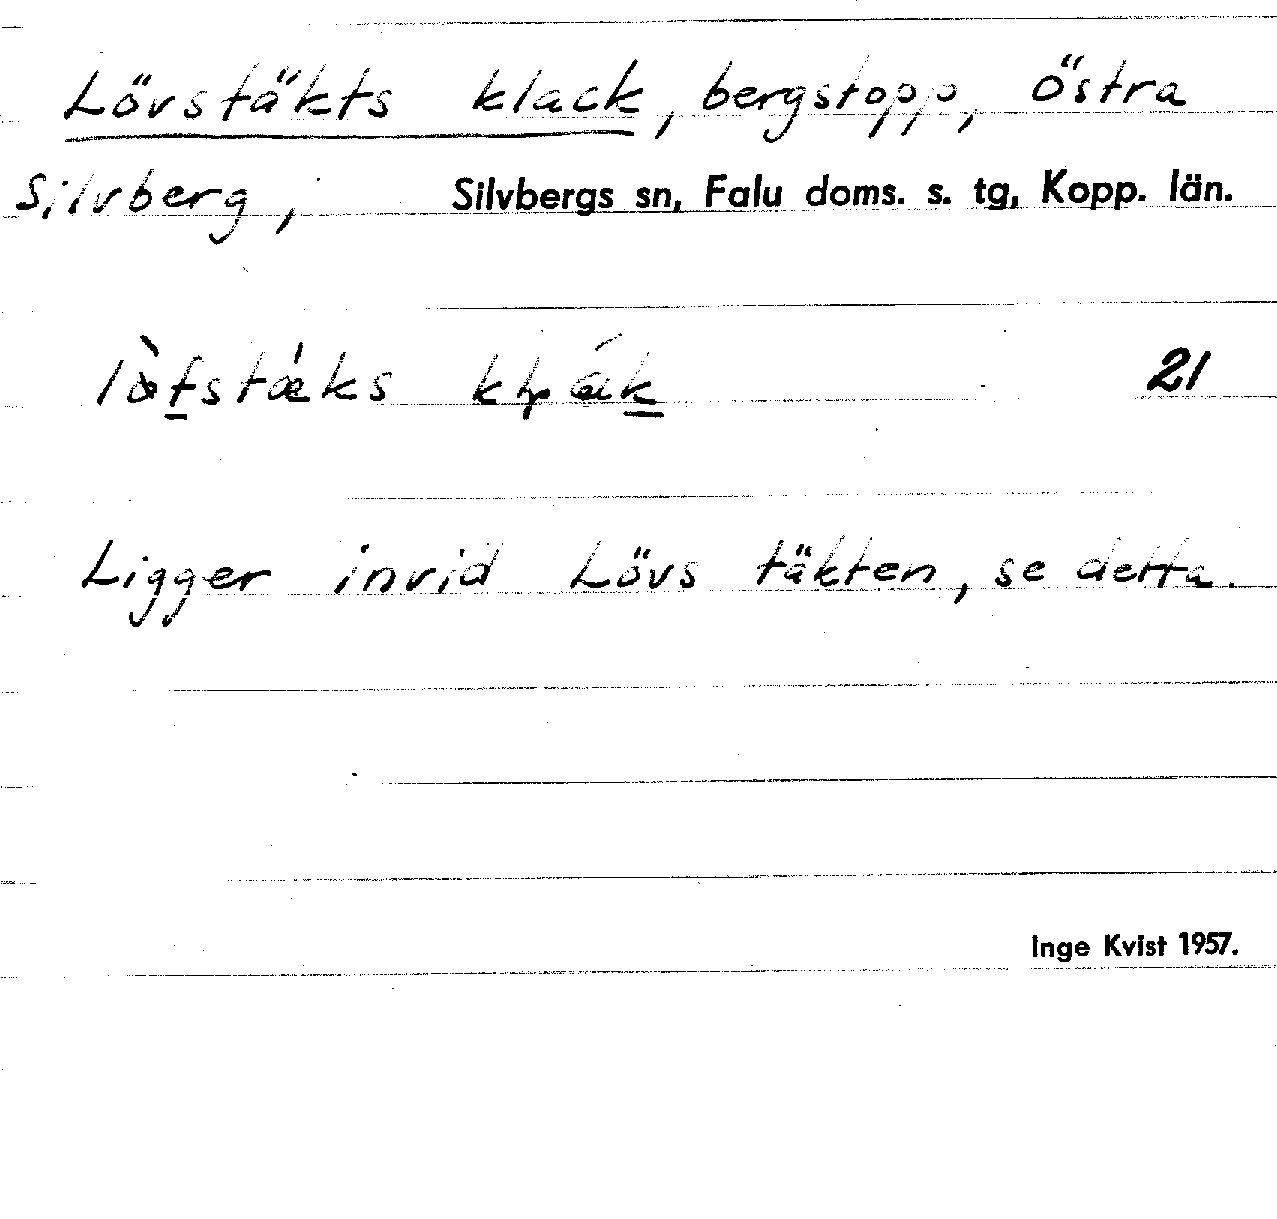 Lövstäkts klack, bergstopp, östra
Silvberg, Silvbergs sn, Falu doms. s. tg, Kopp. län.
21
Ligger invid Lövs täkten, se detta.
Inge Kvist 1957.